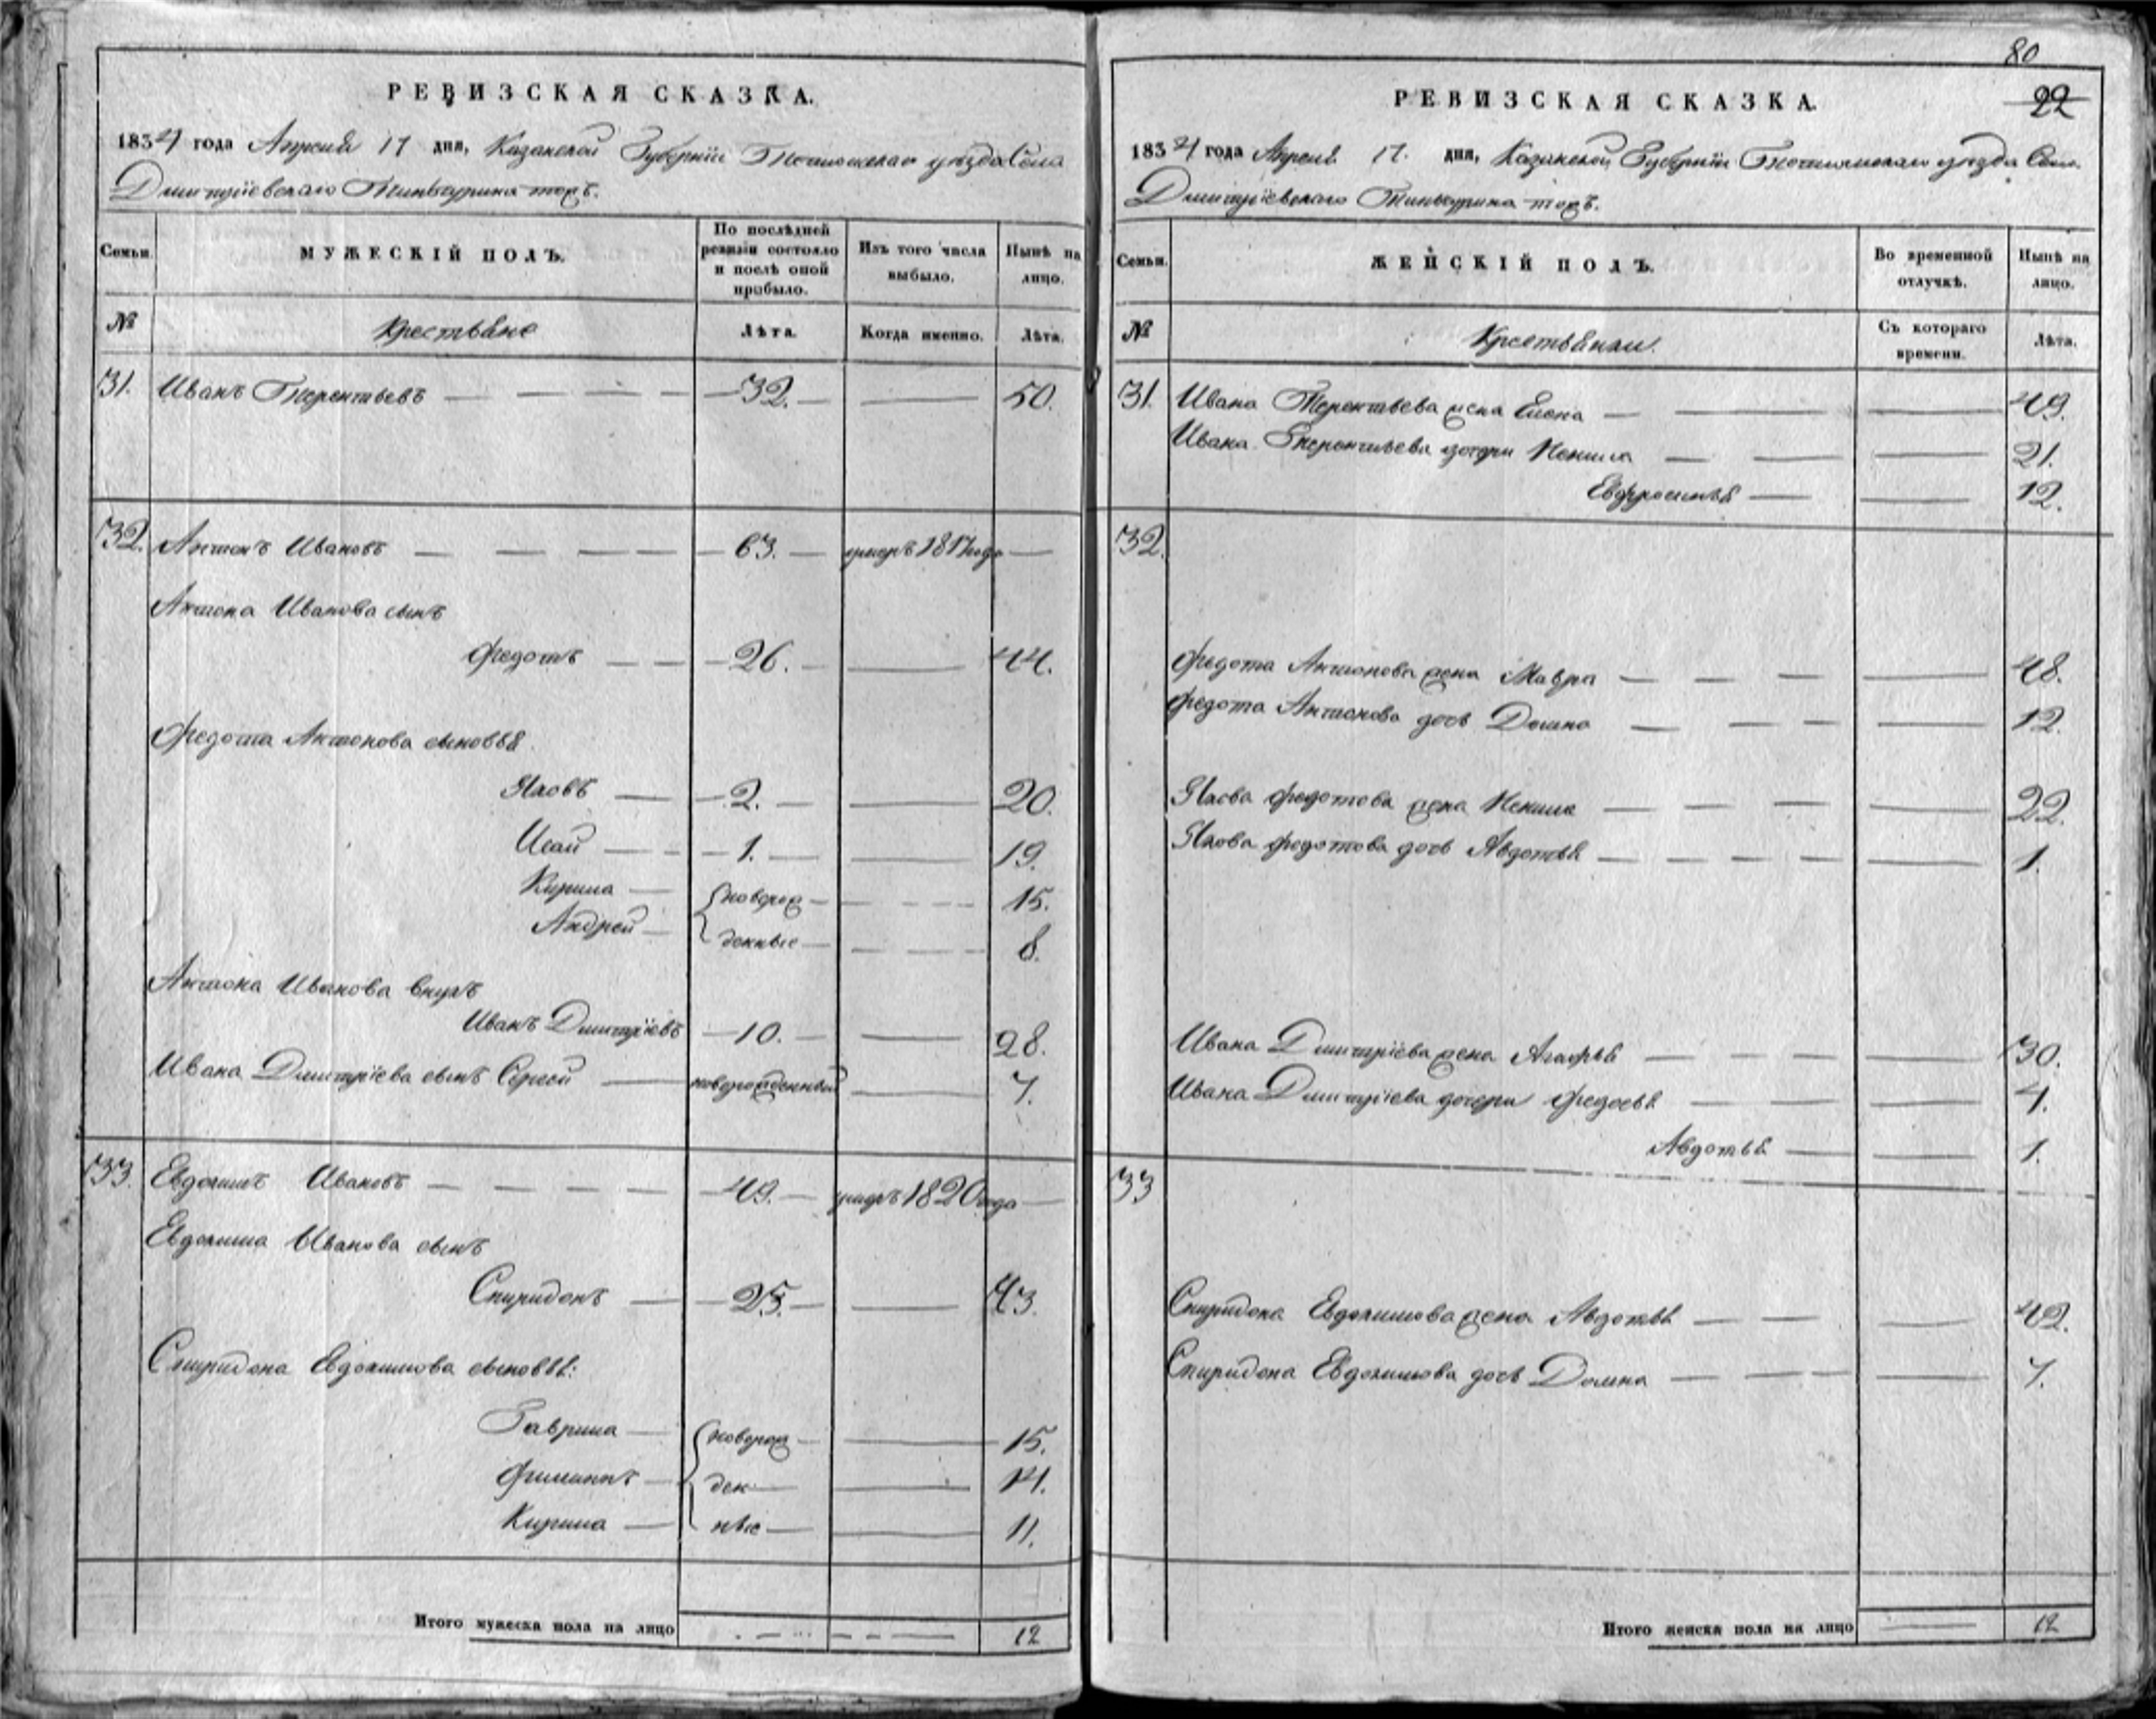 РЕВИЗСКАЯ СКАЗКА.
1834 года Апреля 17 дня, Казанской Губернiи уѣзда Села
Дмитрiевскаго тожъ.
Семьи.
МУЖЕСКIЙ ПОЛЪ.
По послѣдней ревизiи состояло и послѣ оной прибыло.
Изъ того числа выбыло.
Нынѣ на лицо.
№
Крестьяне
Лѣта.
Когда именно.
Лѣта.
31. Иванъ Терентьевъ — 32. — 50.
32. Антонъ Ивановъ — 63. — умеръ 1817 года —
Антона Иванова сынъ
Федотъ — 26. — 44.
Федота Антонова сыновья
Яковъ — 2. — 20.
Исай — 1. — 19.
Кирила — новорож — 15.
Андрей — денные — 8.
Антона Иванова внукъ
Иванъ Дмитрiевъ — 10. — 28.
Ивана Дмитрiева сынъ Сергей — новорожденный — 7.
33. Евдокимъ Ивановъ — 49. — умеръ 1820 года —
Евдокима Иванова сынъ
Спиридонъ — 25. — 43.
Спиридона Евдокимова сыновья:
Гаврила — новорож — 15.
Филиппъ — ден — 14.
Кирила — ные — 11.
Итого мужеска пола на лицо — 12
80
22
РЕВИЗСКАЯ СКАЗКА.
1834 года Апреля 17. дня, Казанской Губернiи уѣзда Села
Дмитрiевскаго тожъ.
Семьи.
ЖЕНСКIЙ ПОЛЪ.
Во временной отлучкѣ.
Нынѣ на лицо.
№
Крестьянки.
Съ котораго времени.
Лѣта.
31. Ивана Терентьева жена Елена — 49.
Ивана Терентьева дочери Ненила — 21.
Евфросинья — 12.
32.
Федота Антонова жена Мавра — 48.
Федота Антонова дочь Домна — 12.
Якова Федотова жена Ненила — 22.
Якова Федотова дочь Авдотья — 1.
Ивана Дмитрiева жена Агафья — 30.
Ивана Дмитрiева дочери Федосья — 4.
Авдотья — 1.
33
Спиридона Евдокимова жена Авдотья — 42.
Спиридона Евдокимова дочь Домна — 7.
Итого женска пола на лицо — 12